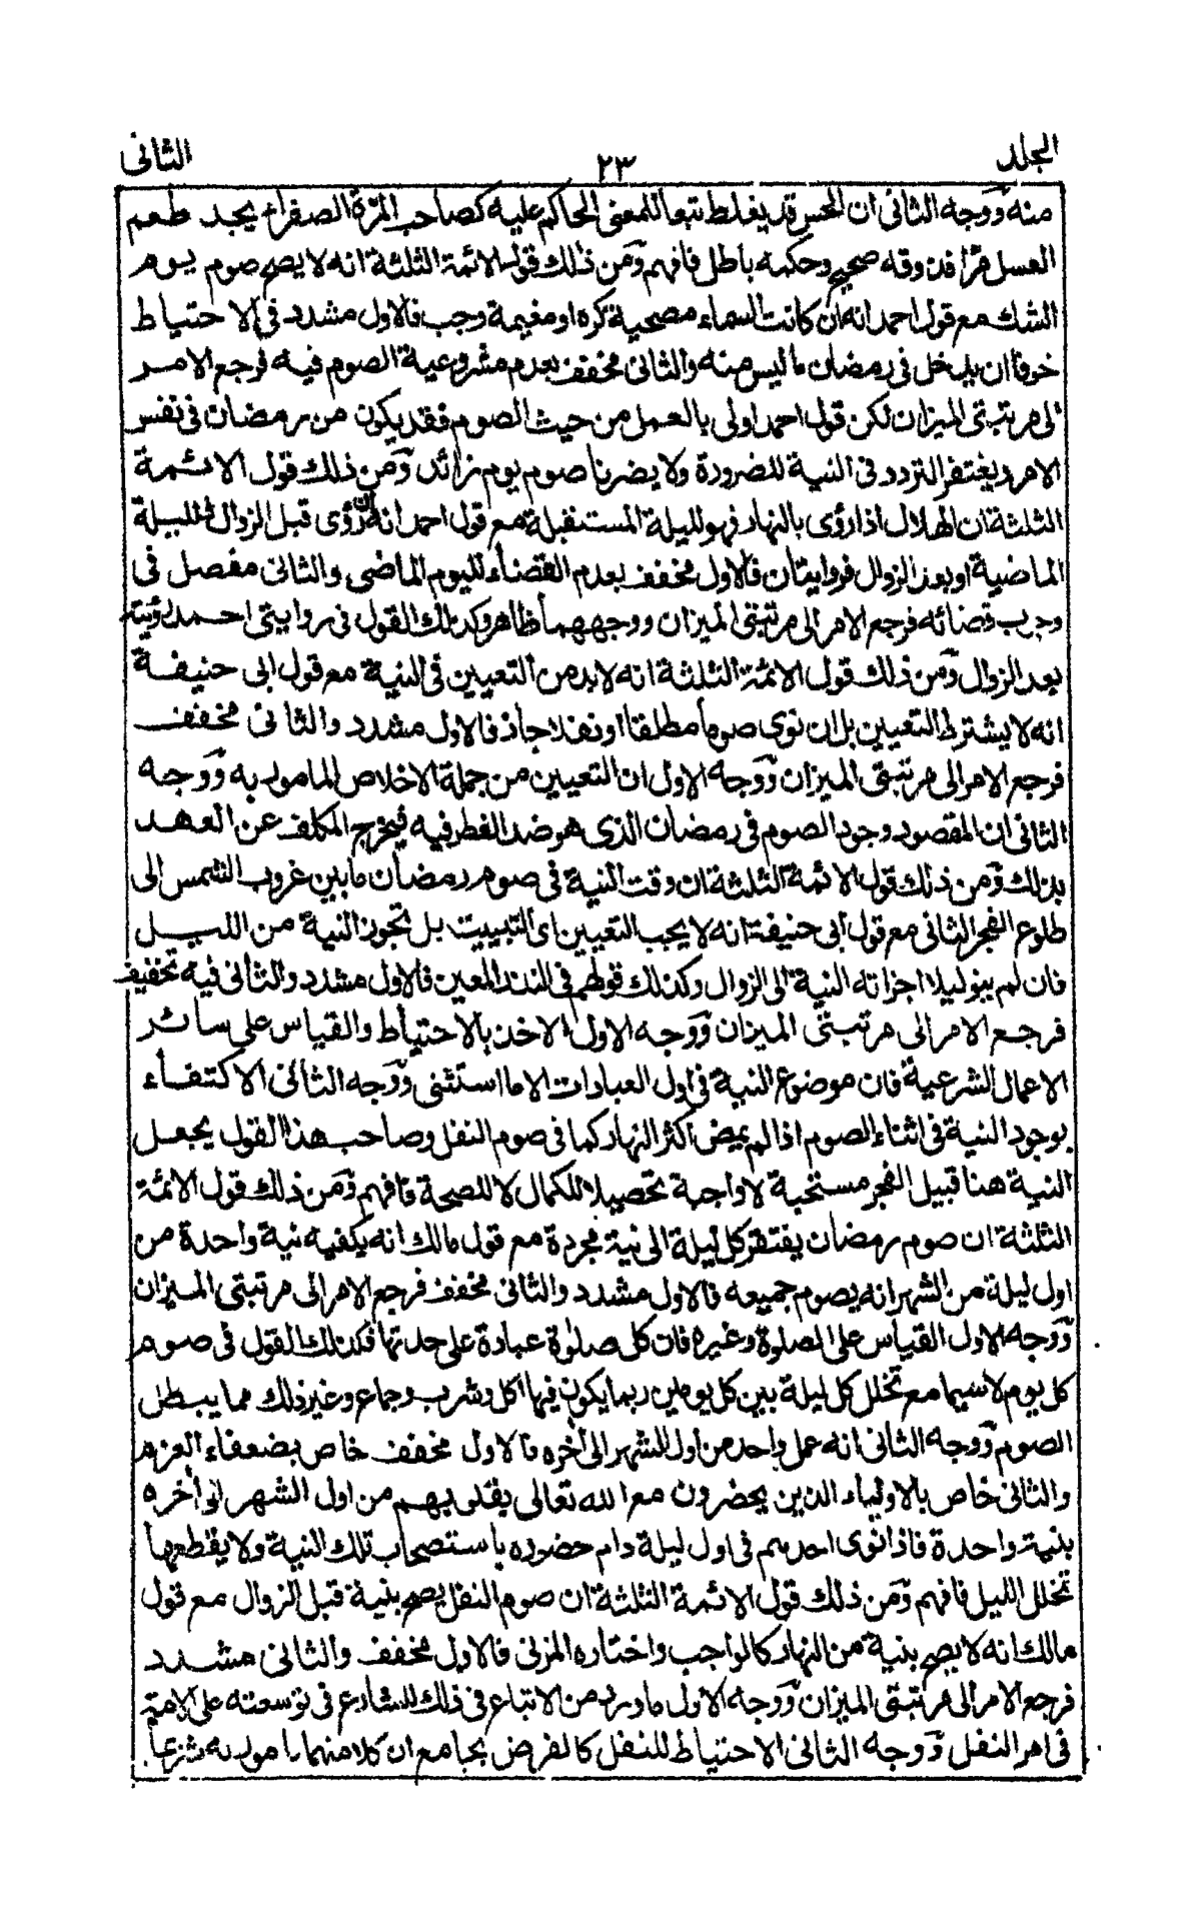 المجلد ٢٣ الثانى
منه ووجه الثانى ان الحس قد يغلط تبعا للمعنى الحاكم عليه كصاحب المرة الصفراء يجد طعم
العسل مرا فذوقه صحيح وحكمه باطل فافهم ومن ذلك قول الائمة الثلثة انه لا يصح صوم يوم
الشك مع قول احمد انه ان كانت السماء مصحية كره او مغيمة وجب فالاول مشدد فى الاحتياط
خوفا ان يدخل فى رمضان ما ليس منه والثانى مخفف بعدم مشروعية الصوم فيه فرجع الامر
الى مرتبتى الميزان لكن قول احمد اولى بالعمل من حيث الصوم فقد يكون من رمضان فى نفس
الامر ويغتفر التردد فى النية للضرورة ولا يضرنا صوم يوم زائد ومن ذلك قول الائمة
الثلثة ان الهلال اذا رؤى بالنهار فهو لليلة المستقبلة مع قول احمد انه ان رؤى قبل الزوال فلليلة
الماضية او بعد الزوال فروايتان فالاول مخفف بعدم القضاء لليوم الماضى والثانى مفصل فى
وجوب قضائه فرجع الامر الى مرتبتى الميزان ووجههما ظاهر وكذلك القول فى روايتى احمد برؤيته
بعد الزوال ومن ذلك قول الائمة الثلثة انه لابد من التعيين فى النية مع قول ابى حنيفة
انه لا يشترط التعيين بل ان نوى صوما مطلقا او نفلا جاز فالاول مشدد والثانى مخفف
فرجع الامر الى مرتبتى الميزان ووجه الاول ان التعيين من جملة الاخلاص المامور به ووجه
الثانى ان المقصود وجود الصوم فى رمضان الذى هو ضد الفطر فيه فيخرج المكلف عن العهد
بذلك ومن ذلك قول الائمة الثلثة ان وقت النية فى صوم رمضان ما بين غروب الشمس الى
طلوع الفجر الثانى مع قول ابى حنيفة انه لا يجب التعيين اى التبييت بل تجوز النية من الليل
فان لم ينو ليلا اجزاته النية الى الزوال وكذلك قولهم فى النذر المعين فالاول مشدد والثانى فيه تخفيف
فرجع الامر الى مرتبتى الميزان ووجه الاول الاخذ بالاحتياط والقياس على سائر
الاعمال الشرعية فان موضوع النية فى اول العبادات الا ما استثنى ووجه الثانى الاكتفاء
بوجود النية فى اثناء الصوم اذا لم يمض اكثر النهار كما فى صوم النفل وصاحب هذا القول يجعل
النية هنا قبيل الفجر مستحبة لا واجبة تحصيلا للكمال لا للصحة فافهم ومن ذلك قول الائمة
الثلثة ان صوم رمضان يفتقر كل ليلة الى نية مجردة مع قول مالك انه يكفيه نية واحدة من
اول ليلة من الشهر انه يصوم جميعه فالاول مشدد والثانى مخفف فرجع الامر الى مرتبتى الميزان
ووجه الاول القياس على الصلوة وغيره فان كل صلوة عبادة على حدتها فكذلك القول فى صوم
كل يوم لا سيما مع تخلل كل ليلة بين كل يومين ربما يكون فيها اكل وشرب وجماع وغير ذلك مما يبطل
الصوم ووجه الثانى انه عمل واحد من اول الشهر الى أخره فالاول مخفف خاص بضعفاء العزم
والثانى خاص بالاولياء الذين يحضرون مع الله تعالى بقلوبهم من اول الشهر الى أخره
بنية واحدة فاذا نوى احدهم فى اول ليلة دام حضوره باستصحاب تلك النية ولا يقطعها
تخلل الليل فافهم ومن ذلك قول الائمة الثلثة ان صوم النفل يصح بنية قبل الزوال مع قول
مالك انه لا يصح بنية من النهار كالواجب واختاره المزنى فالاول مخفف والثانى مشدد
فرجع الامر الى مرتبتى الميزان ووجه الاول ما ورد من الاتباع فى ذلك للشارع فى توسعته على الامة
فى امر النفل ووجه الثانى الاحتياط للنفل كالفرض بجامع ان كلا منهما مامور به شرعا